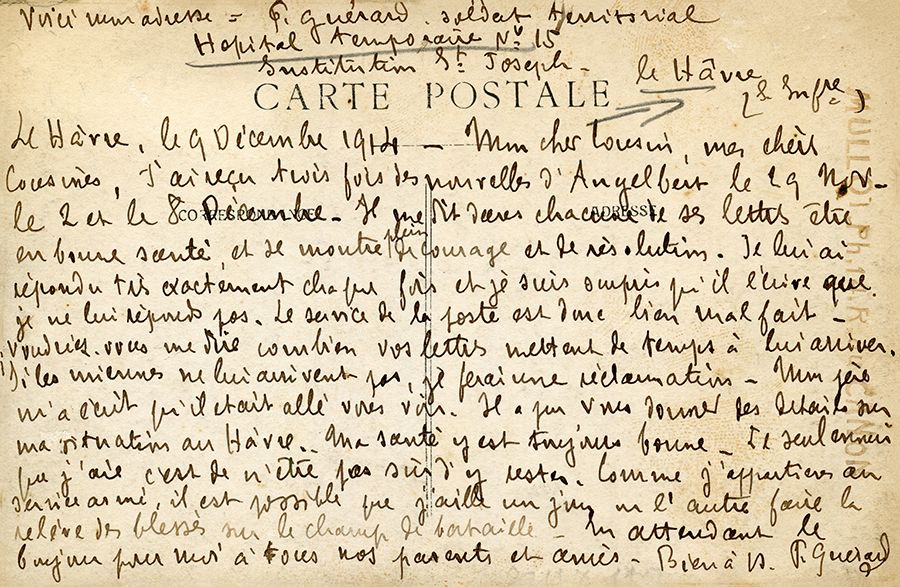 Voici mon adresse = P. Guérard. soldat territorial
Hopital temporaire No 15
Institution St Joseph -
le Hâvre
(Se Infre)
CARTE POSTALE
Le Hâvre, le 9 Décembre 1914 - Mon cher Cousin, mes chères
Cousines, J'ai reçu trois fois des nouvelles d'Angelbert le 29 Nov-
le 2 et le 8 Décembre - Il me dit dans chacune de ses lettres être
CORRESPONDANCE
ADRESSE
en bonne santé, et se montre plein de courage et de résolution. Je lui ai
répondu très exactement chaque fois et je suis surpris qu'il l'écrive que
je ne lui réponds pas. Le service de la poste est donc bien mal fait -
Voudriez-vous me dire combien vos lettres mettent de temps à lui arriver.
Si les miennes ne lui arrivent pas, je ferai une réclamation - Mon père
m'a écrit qu'il était allé vous voir. Il a pu vous donner des détails sur
ma situation au Hâvre. Ma santé y est toujours bonne - Le seul ennui
que j'aie c'est de n'être pas sûr d'y rester. Comme j'appartiens au
service armé, il est possible que j'aille un jour ou l'autre faire la
relève des blessés sur le champ de bataille - En attendant le
bonjour pour moi à tous nos parents et amis - Bien à V. P. Guérard